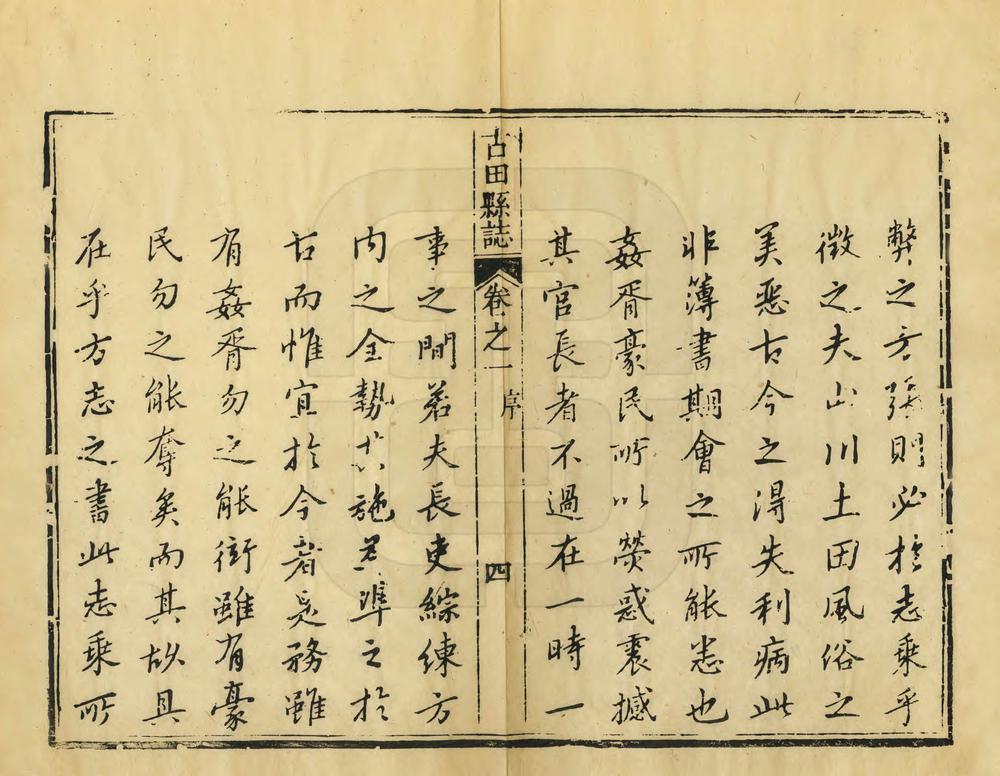 弊之方張則必於志乗乎
徵之夫山川土田風俗之
美惡古今之淂失利病此
非簿書期會之所能悉也
姦胥豪民所以熒惑震撼
其官長者不過在一時一
古田縣誌 卷之一 序 四
事之間若夫長吏綜練方
内之全勢其施爲準之於
古而惟宜於今者是務雖
有姦胥勿之能衒雖有豪
民勿之能奪矣而其故具
在乎方志之書此志乗所